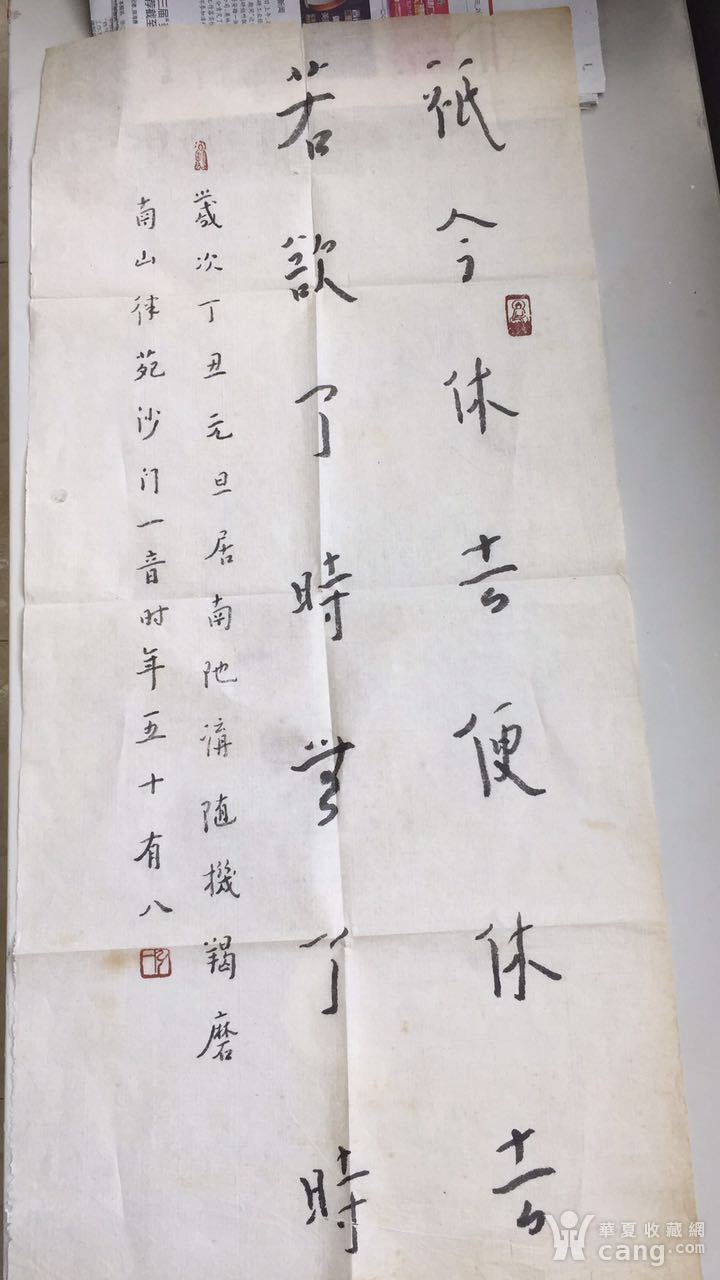 祇今休去便休去
若欲了時無了時
歲次丁丑元旦居南陀講随機羯磨
南山律苑沙门一音时年五十有八
華夏收藏網
cang.com